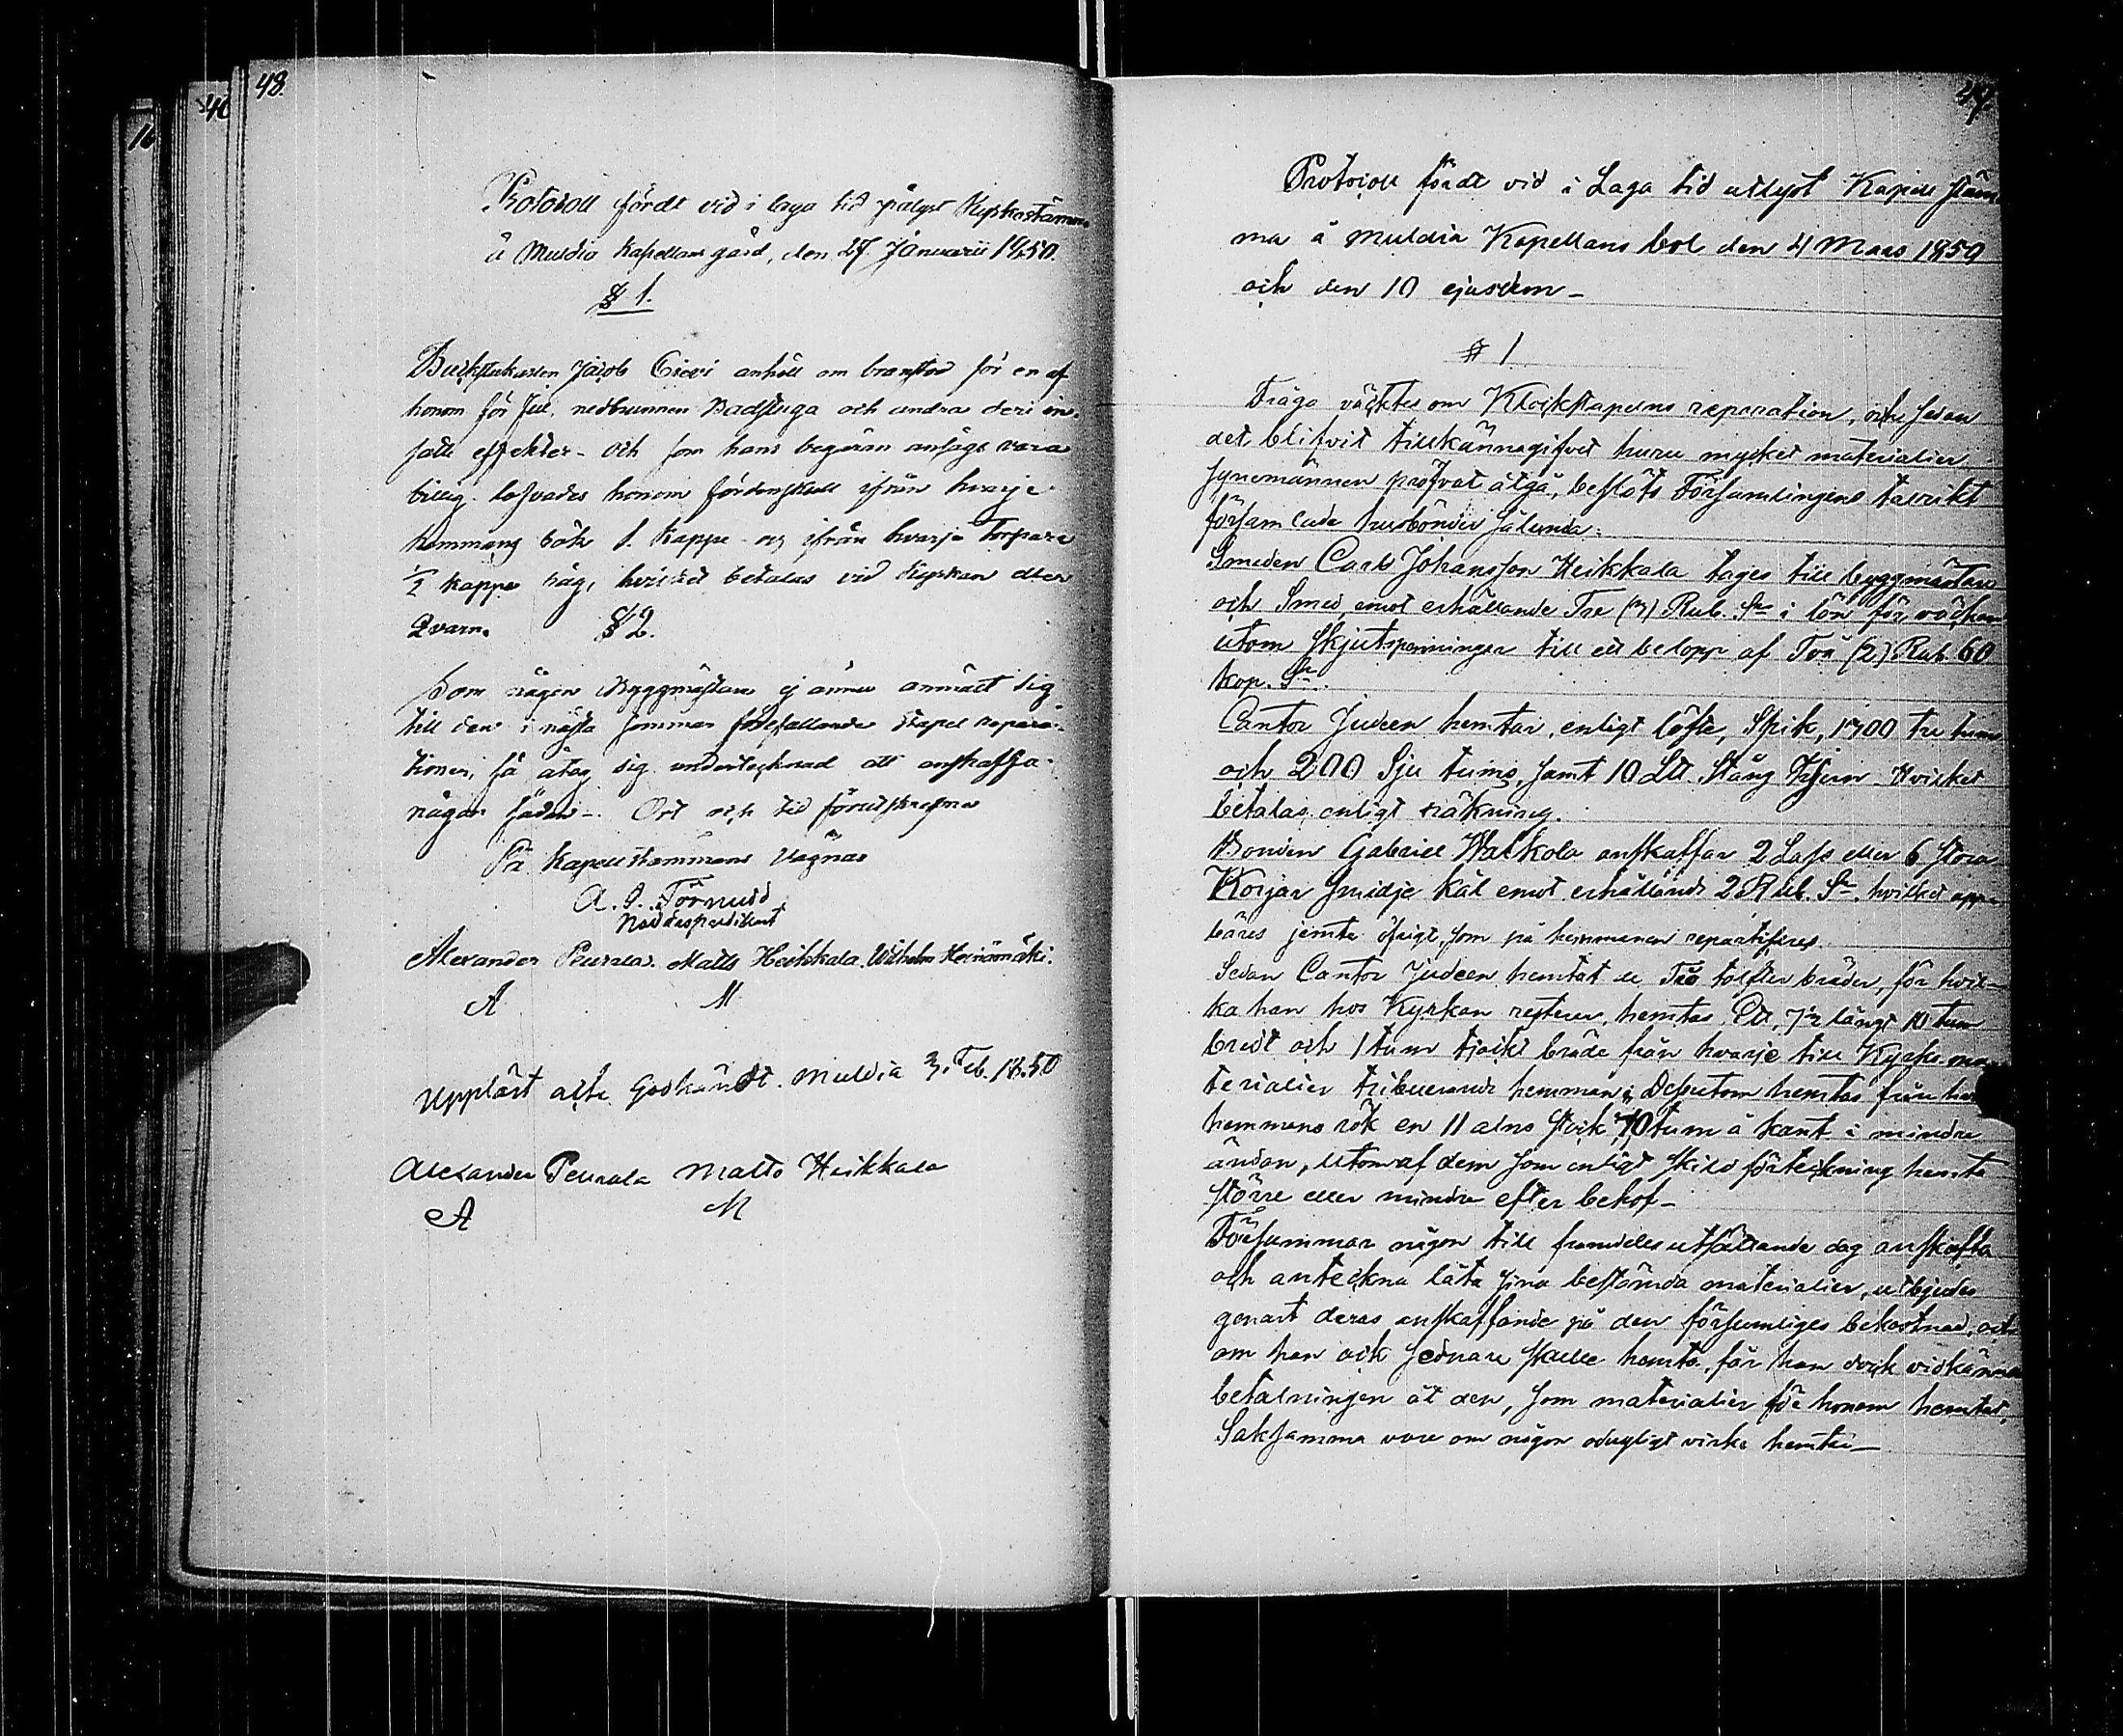 48.
40
16
Protocoll fördt vid i laga tid pålyst Kyrkostämma
å Muldia Kapellans gård, den 27. Januarii 1850.
§ 1.
Jacob anhöll om branstod för en af
honom för Jul, nedbrunnen Badstuga och andra deri in-
satte effekter. Och som hans begäran ansågs vara
billig, lofvades honom fördenskull ifrån hvarje
hemmans rök 1. Kappe och ifrån hvarje Torpare
1/2 Kappe råg, hvilket betalas vid Kyrkan eller
Qvarn.
§ 2.
Som någon Byggmästare ej ännu anmält sig
till den i nästa sommar förefallande stapel repara-
tionen, så åtog sig undertecknad att anskaffa
någon sådan. Ort och tid förutskrefne
På Kapellstämmans Vägnar
A. J. Törnudd
Nådårspredikant
Alexander Peurala. Matts Heikkala. Wilhelm Heinämäki.
A M
Uppläst och Godkändt. Muldia 3. Feb. 1850
Alexander Peurala Matts Heikkala
A M
47.
Protocoll fördt vid i Laga tid utlyst Kapell stäm-
ma å Muldia Kapellans bol den 4 Mars 1850
och den 10 ejusdem -
§ 1
Fråga väcktes om Klockstapelns reparation, och sedan
det blifvit tillkännagifvet huru mycket materialier
synemännen pröfvat åtgå, beslöts Församlingens talrikt
församlade husbönder sålunda:
Smeden Carl Johansson Heikkala tages till byggmästare
och Smed, emot erhållande Tre (3) Rub. Sr i lön för veckan
utom Skjutspenningar till ett belopp af Två (2) Rub. 60
kop. Sr.
Cantor Judeen hemtar, enligt löfte, Spik, 1700 tre tums
och 200 Sju tums, samt 10 Ltt. Stång Jern. Hvilket
betalas enligt räkning.
Bonden Gabriel anskaffar 2 Lass eller 6 stora
Korgar Smidje kål emot erhållande 2 Rub. Sr. hvilket upp-
bäres jemte öfrigt, som på hemmanen repartiseras.
Sedan Cantor Judeen hemtat de Två tolfter bräder, för hvil-
ka han hos Kyrkan resterar, hemtas Ett, långt 10 tum
bredt och 1 tum tjockt bräde från hvarje till Kyrko ma-
terialier tribuerande hemman; Dessutom hemtas från
hemmans rök en 11 alns stock, 10 tum å kant i mindre
ändan, utom af dem som enligt skild förteckning hemta
större eller mindre efter behof -
Försummar någon till framdeles utsättande dag anskaffa
och anteckna låta sina bestämda materialier, utbjudes
genast deras anskaffande på den försumliges bekostnad, och
om han ock sednare skulle hemta, får han dock vidkännas
betalningen åt den, som materialier för honom hemtat,
Saksamma vare om någon odugligt virke hemtar -